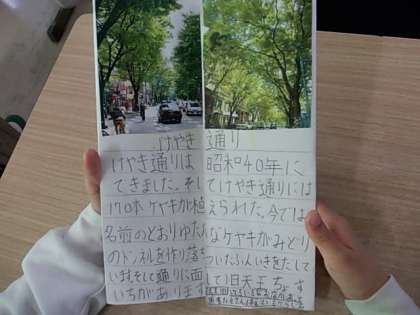 けやき通り
けやき通りは昭和40年に
できました。そしてけやき通りには
170本ケヤキが植えられた。今では
名前のとおりゆたかなケヤキがみどり
のトンネルを作り落ちついたふんいきをだして
います。そして通りに面して
いちがあります